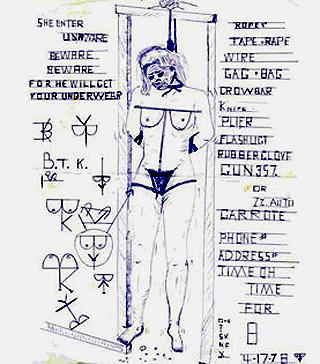 SHE ENTER
UNAWARE
BEWARE
BEWARE
FOR HE WILL GET
YOUR UNDERWEAR
B.T.K.
ROPE
TAPE • RAPE
WIRE
GAG • BAG
CROWBAR
KNIFE
PLIER
FLASHLIGT
RUBBER GLOVE
GUN 357
OR
22 AUTO
GARROTE
PHONE#
ADDRESS#
TIME OH
TIME
FOR
4-17-78